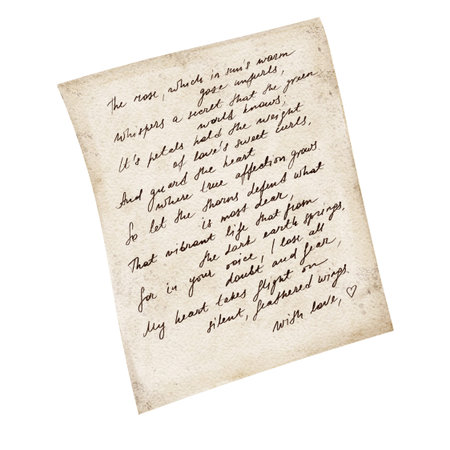 The rose, which in sun's warm
gaze unfurls,
Whispers a secret that the green
world knows,
It's petals hold the weight
of love's sweet curls,
And guard the heart
where true affection grows
So let the thorns defend what
is most dear,
That vibrant life that from
the dark earth springs,
For in your voice, I lose all
doubt and fear,
My heart takes flight on
silent, feathered wings.
With love, ♡